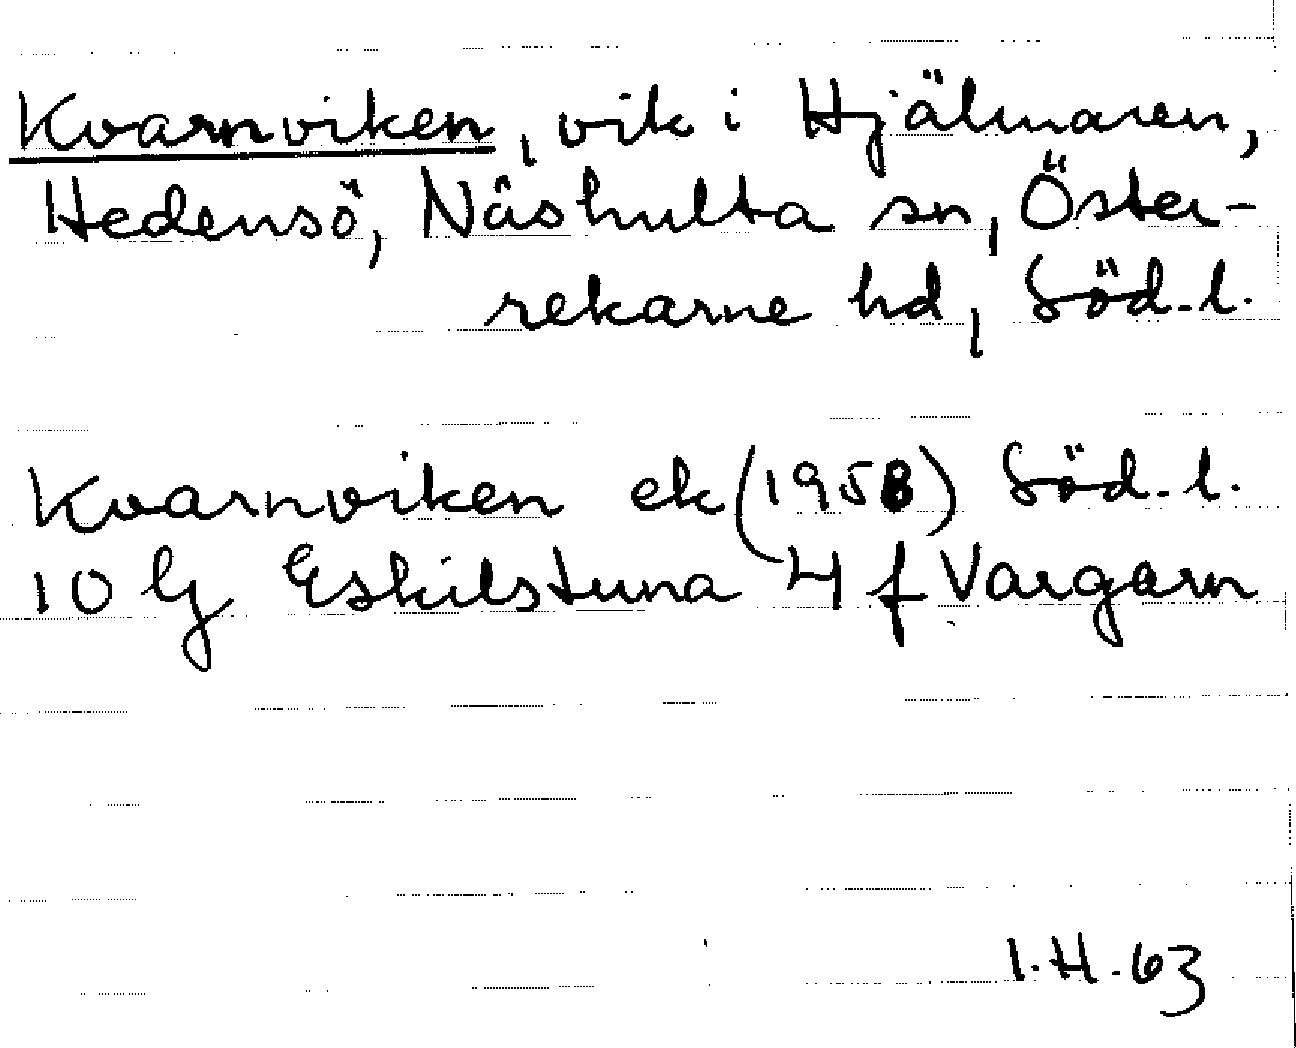 Kvarnviken, vik i Hjälmaren,
Hedensö, Näshulta sn, Öster-
rekarne hd, Söd.l.
Kvarnviken ek (1958) Söd.l.
10 G Eskilstuna 4 f Vargarn
I.H.63